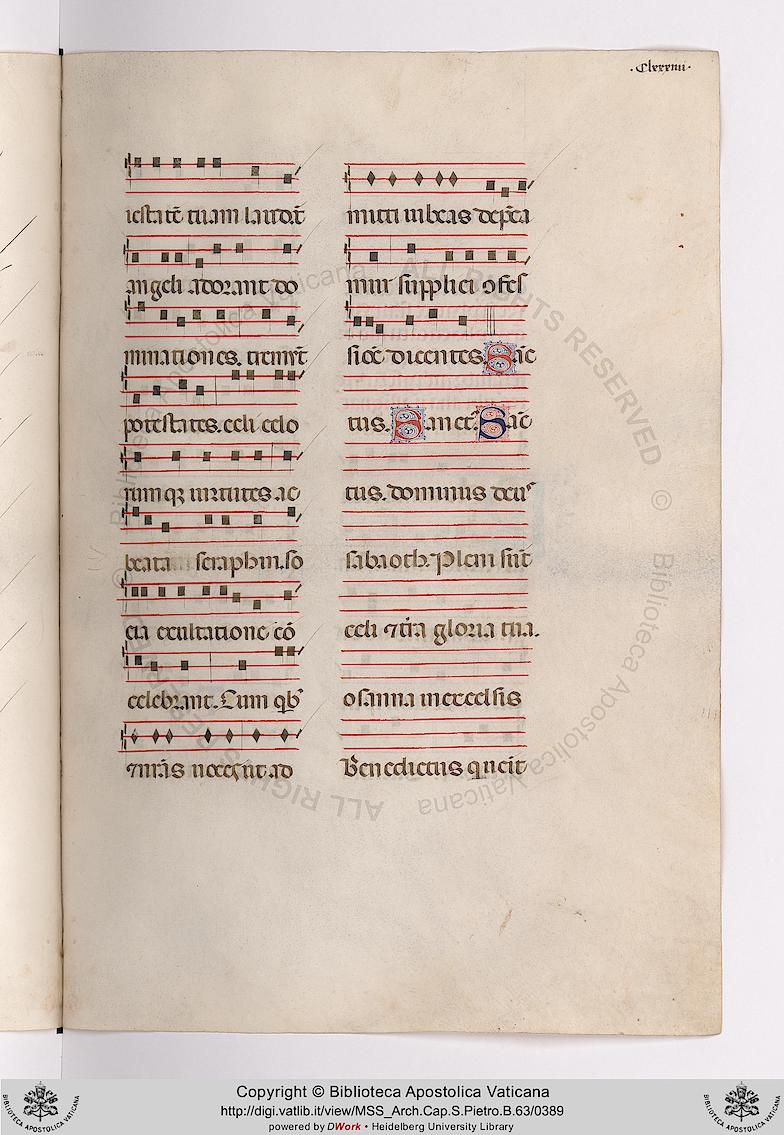 ·Clxxxiiii·
iestatē tuam laudāt
angeli adorant do
minationes. tremūt
potestates. celi celo
rumqꝫ uirtutes. ac
beata seraphin. so
cia exultatione cō
celebrant. Cum qbꝰ
⁊ nr̄as uoces ut ad
mitti iubeas dep̄ca
mur supplici ↄfes
siōe dicentes. Sāc
tus. Sanctꝰ Sāc
tus. dominus deus
sabaoth. Pleni sūt
celi ⁊ t̄ra gloria tua.
osanna in excelsis
Benedictus qui ueīt
BIBLIOTECA APOSTOLICA VATICANA
Copyright © Biblioteca Apostolica Vaticana
http://digi.vatlib.it/view/MSS_Arch.Cap.S.Pietro.B.63/0389
powered by DWork • Heidelberg University Library
BIBLIOTECA APOSTOLICA VATICANA
© Biblioteca Apostolica Vaticana ALL RIGHTS RESERVED © Biblioteca Apostolica Vaticana ALL RIGHTS RESERVED